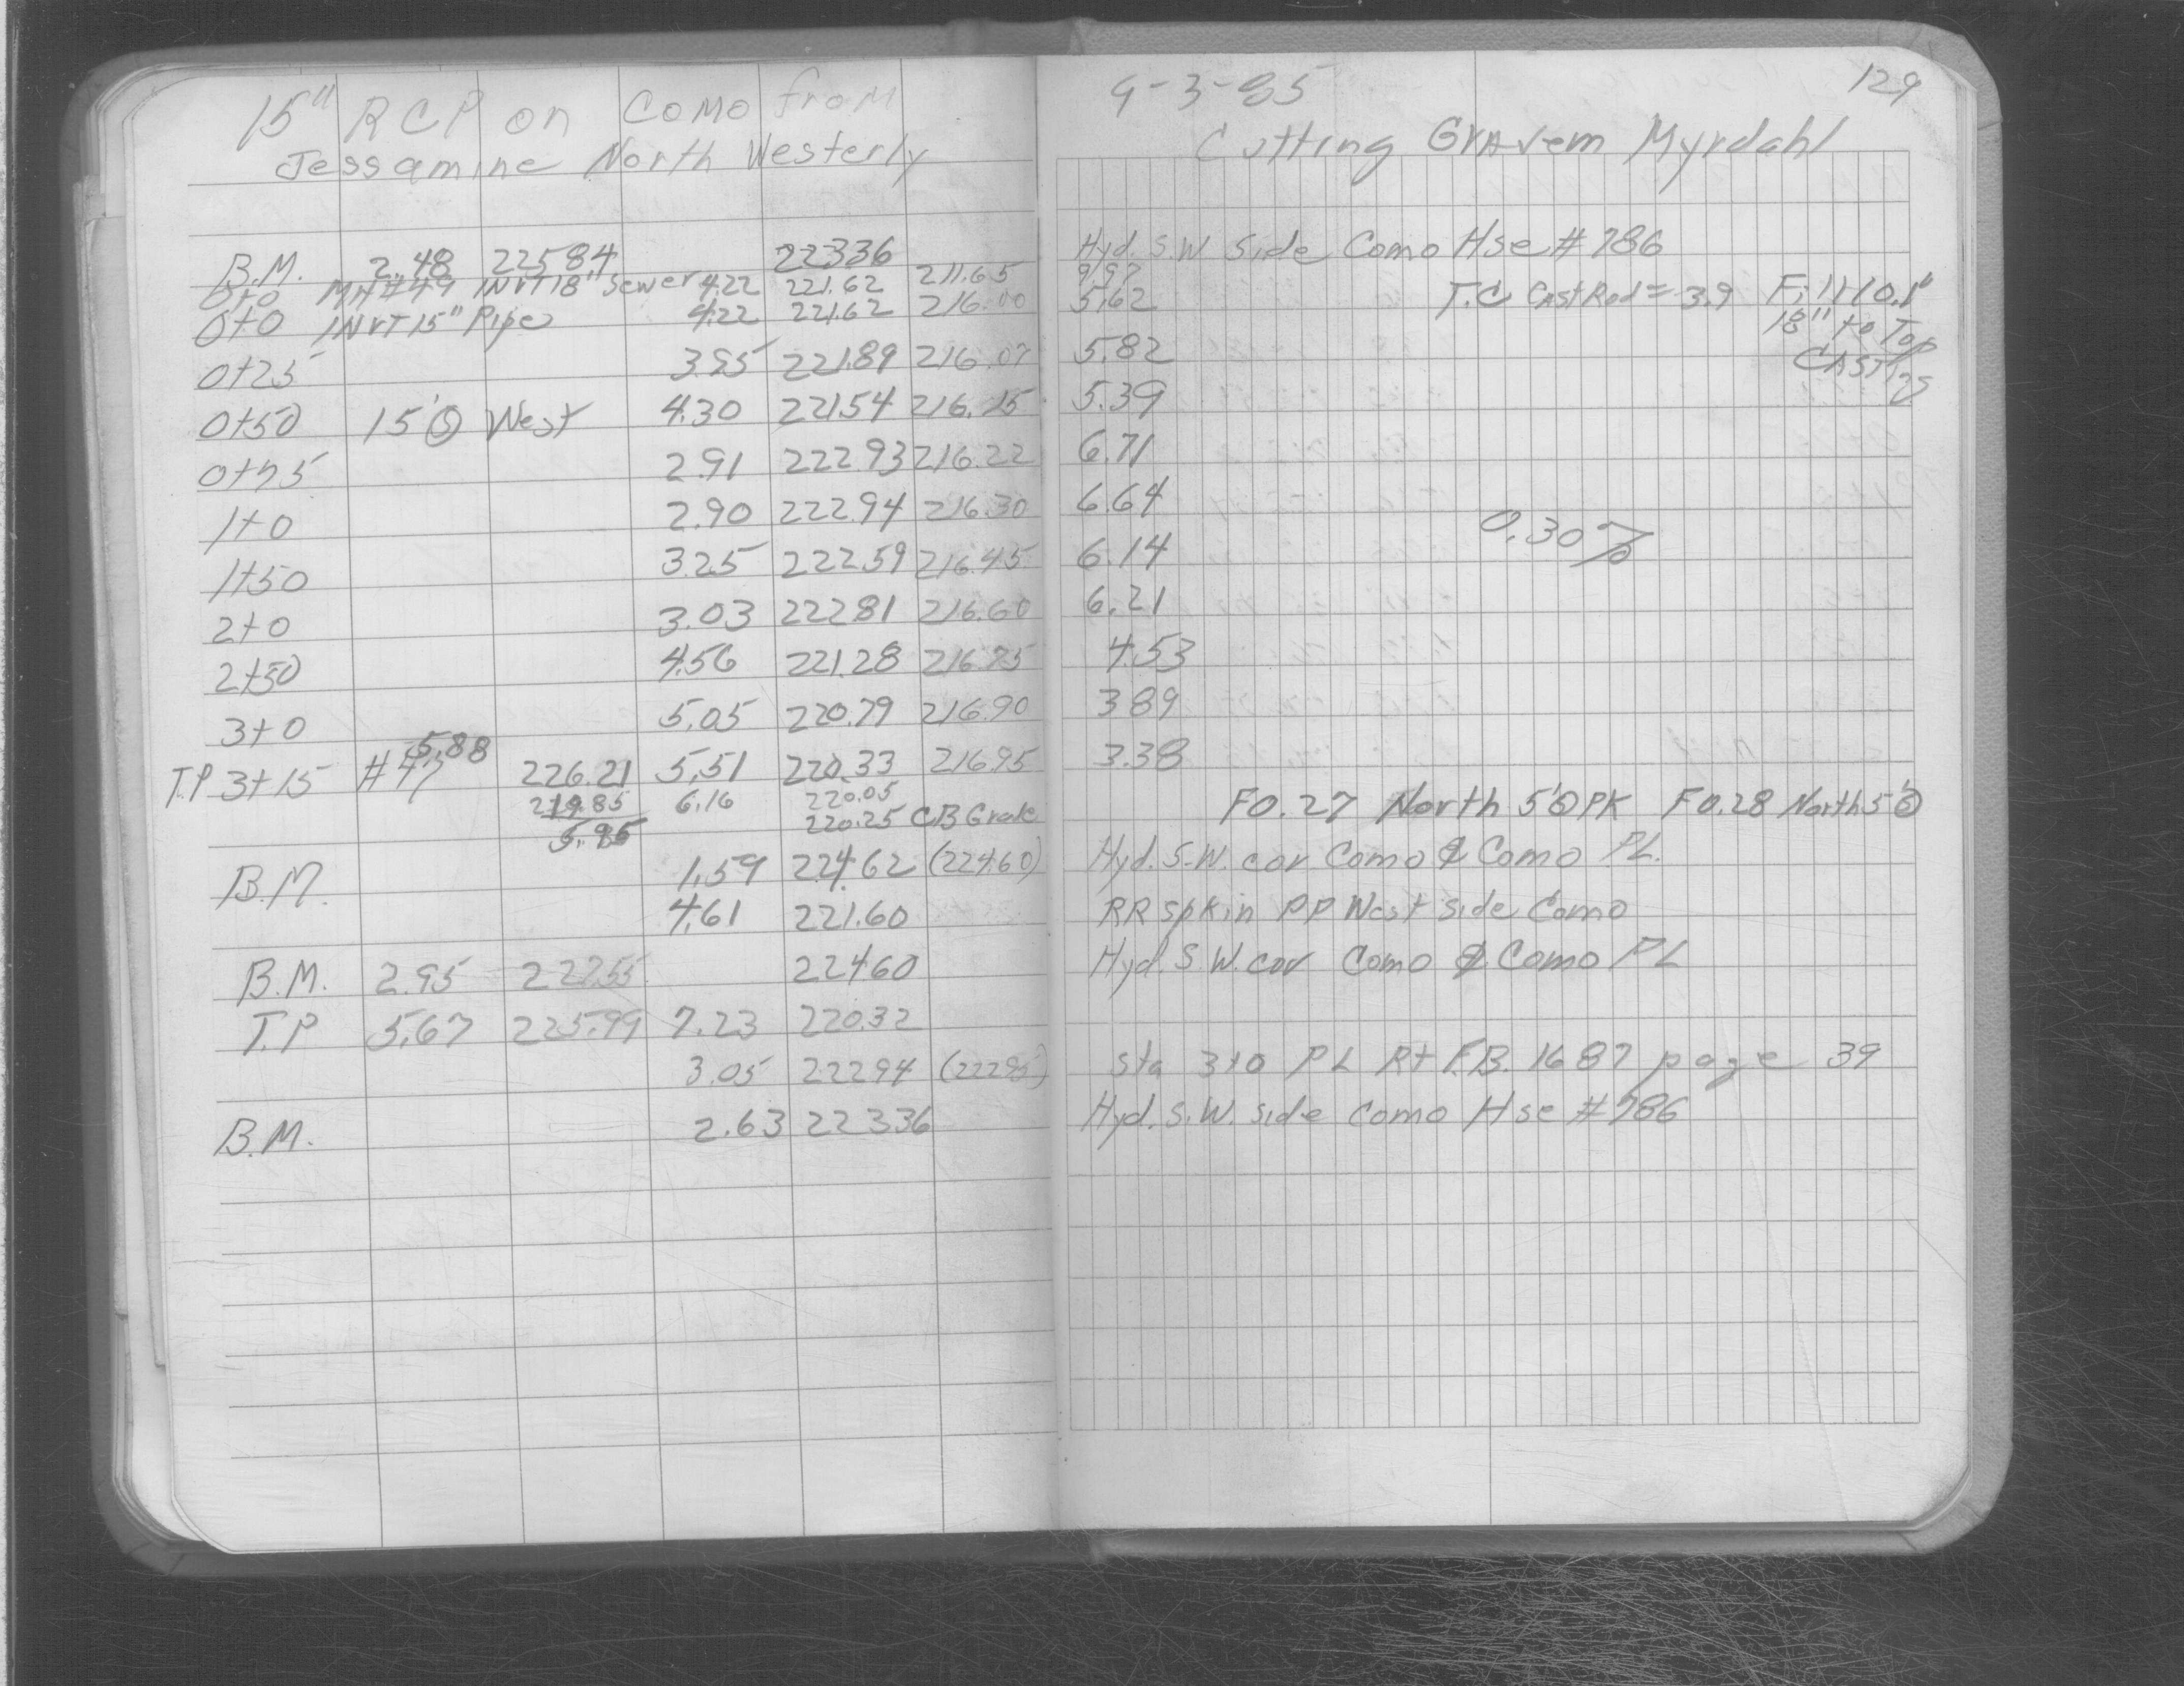 15" RCP on Como from
Jessamine North Westerly
B.M. 2.48 225.84 223.36
0+0 MH #49 INVT 18" Sewer 4.22 221.62 211.65
0+0 INVT 15" Pipe 4.22 221.62 216.00
0+25 3.95 221.89 216.07
0+50 15' West 4.30 221.54 216.15
0+75 2.91 222.93 216.22
1+0 2.90 222.94 216.30
1+50 3.25 222.59 216.45
2+0 3.03 222.81 216.60
2+50 4.56 221.28 216.75
3+0 5.05 220.79 216.90
5.88
T.P 3+15 #47 226.21 5.51 220.33 216.95
219.85 6.16 220.05
5.86 220.25 CB Grate
B.M. 1.59 224.62 (224.60)
4.61 221.60
B.M. 2.95 227.55 224.60
T.P 5.67 225.99 7.23 220.32
3.05 222.94 (222.95)
B.M. 2.63 223.36
9-3-85 129
Cutting Gravem Myrdahl
Hyd. S.W Side Como Hse # 786
9.97
5.62 T.C Cast Rod = 3.9 Fill 0.1'
18" to Top
Casting
5.82
5.39
6.71
6.64
0.30%
6.14
6.21
4.53
3.89
3.38
F0.27 North 5' PK F0.28 North 5'
Hyd. S.W. cor Como & Como PL.
RR spk in PP West side Como
Hyd. S.W. cor Como & Como PL
Sta 3+0 PL Rt F.B. 1687 page 39
Hyd. S.W. side Como Hse # 786